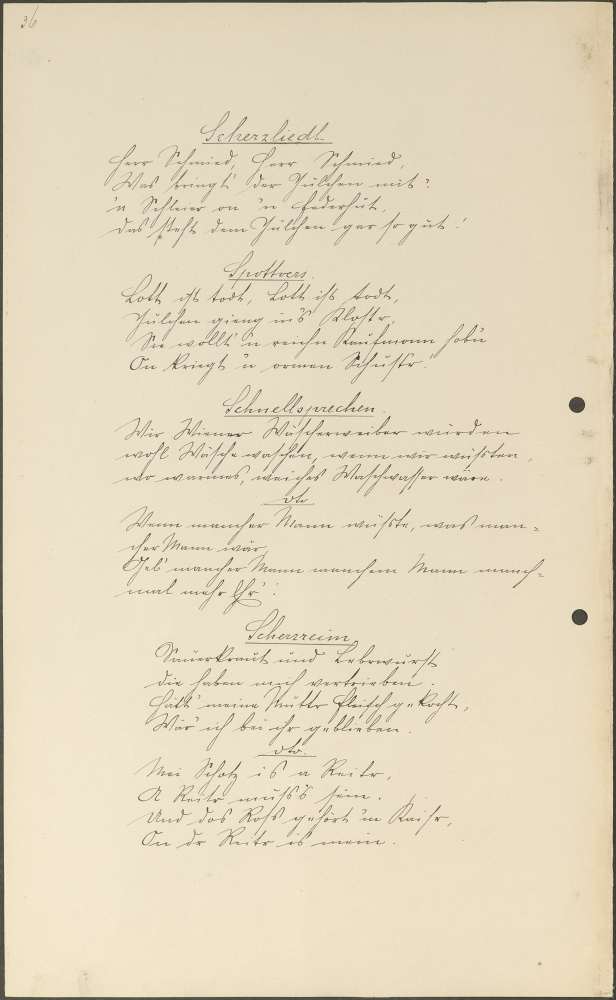 36
Scherzliedl
Herr Schmied, Herr Schmied,
Was bringt der Jülchen mit?
'n Schleier on 'n Federhut,
Das steht dem Jülchen gar so gut!
Spottvers.
Lott ist todt, Lott ist todt,
Jülchen gieng in's Klostr,
Sie wollt' 'n reichn Kaufmonn hobn
On kriegt 'n ormen Schustr!
Schnellsprechen.
Wir Wiener Wäscherweiber würden
wohl Wäsche waschen, wenn wir wüssten,
wo warmes, weiches Waschwasser wäre.
dto
Wenn mancher Mann wüsste, was man-
cher Mann wär,
Geb' mancher Mann manchem Mann manch-
mal mehr Ehr'!
Scherzreim
Sauerkraut und Leberwurst
die haben mich vertrieben.
Hätt' meine Muttr Fleisch gekocht,
Wär' ich bei ihr geblieben.
dto.
Mei Schotz is a Reitr,
A Reitr muss's sein.
Und dos Ross gehört 'm Kaisr,
On dr Reitr is mein.